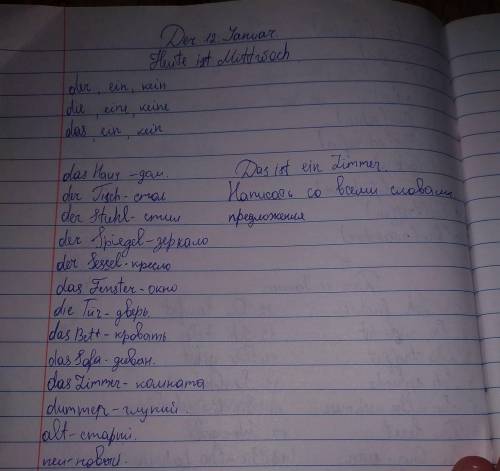 Der 12 Januar.
Heute ist Mittwoch
der, ein, kein
die, eine, keine
das, ein, kein
das Haus - дом.
Das ist ein Zimmer.
der Tisch - стол
Написать со всеми словами
der Stuhl - стул
предложения
der Spiegel - зеркало
der Sessel - кресло
das Fenster - окно
die Tür - дверь.
das Bett - кровать
das Sofa - диван.
das Zimmer - комната
alt - старый.
neu - новый.